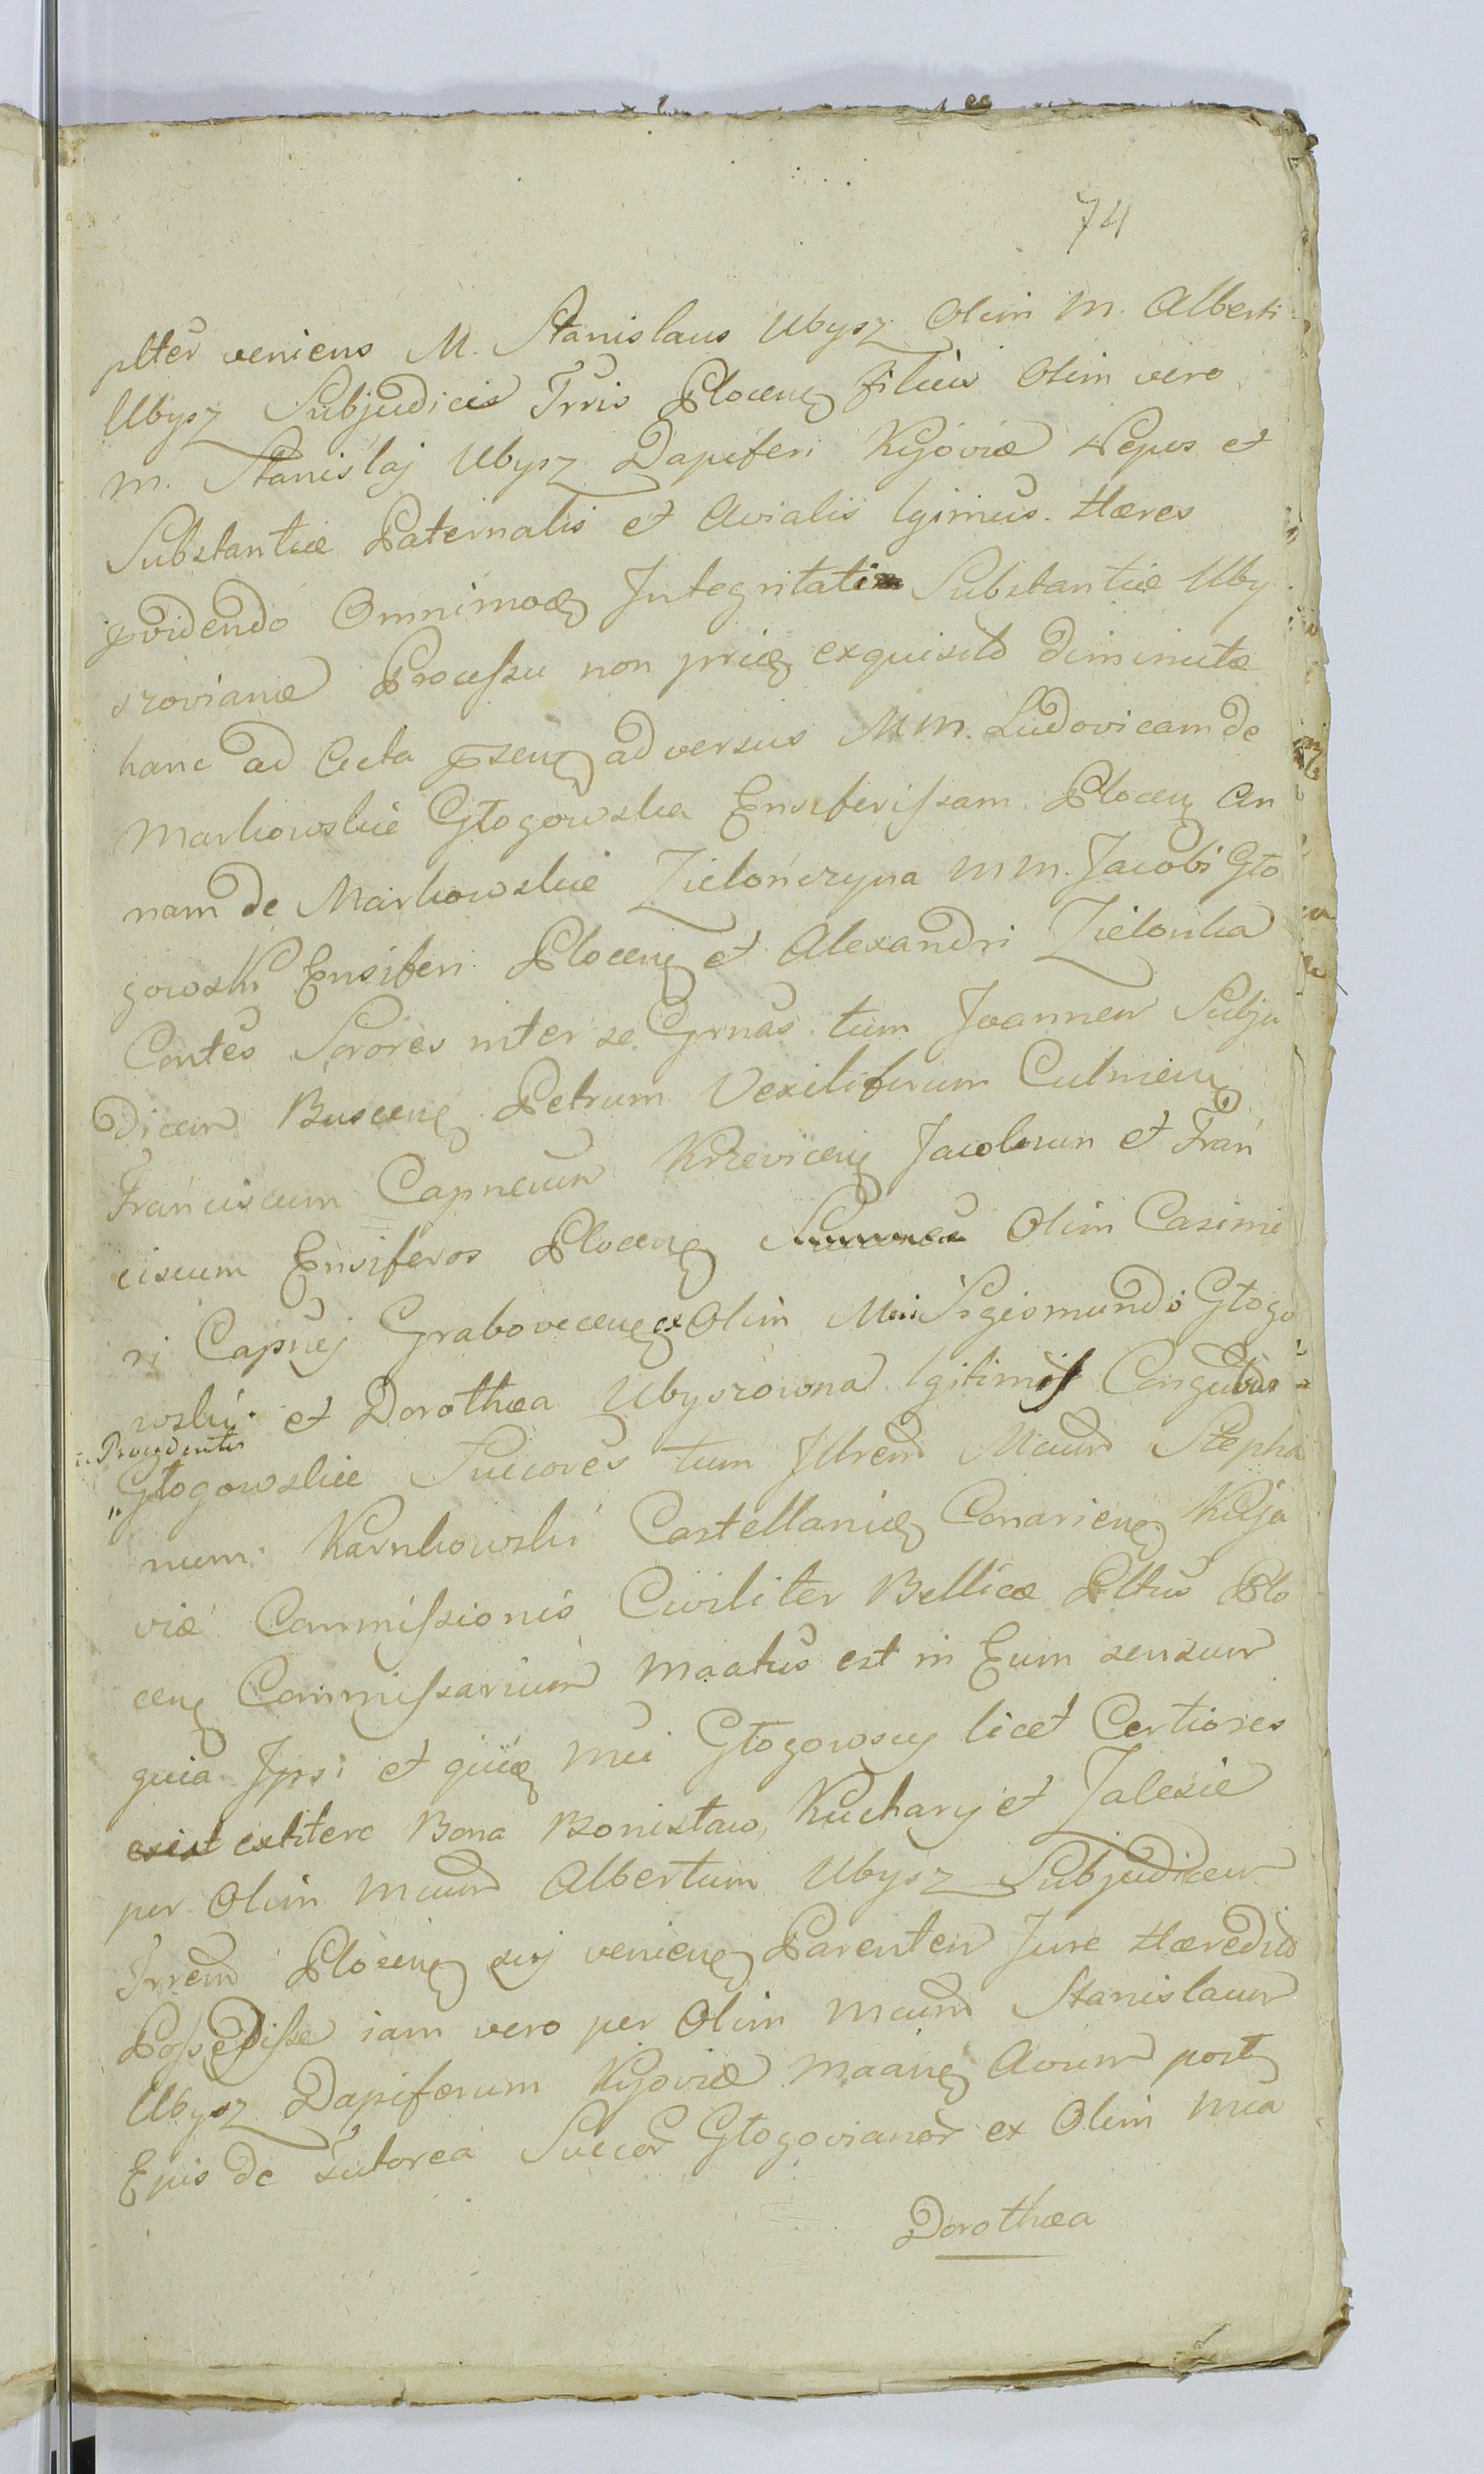 74
plter veniens M. Stanislaus Ubysz Olim M. Alberti
Ubysz Subjudicis Trris Plocenꝭ filius Olim vero
M. Stanislaj Ubysz Dapiferi Kijoviæ Nepos et
Substantiæ Paternalis et Avialis lgimus Hæres
pvidendo Omnimoꝭ Integritati Substantiæ Uby
szovianæ Processu non priꝭ exquisito diminutæ
hanc ad Acta psenꝭ adversus MM. Ludovicam de
Markowskie Głogowska Ensiferissam Plocenꝭ An
nam de Markowskie Zielonczyna MM. Jacobi Gło
gowski Ensiferi Plocenꝭ et Alexandri Zielonka
Contes Sorores inter se Grnas tum Joannem Subju
dicem Buscenꝭ Petrum Vexiliferum Culmenꝭ
Franciscum Capneum Krzevicenꝭ Jacobum et Fran
ciscum Ensiferos Plocenꝭ Olim Casimi
ri Capnej Grabovecenꝭ ex Olim Mcis Sigismundo Głogo
wski et Dorothea Ubyszowna lgitimis Congubus
:. Procedentes
" Głogowskie Succores tum Illrem Mcum Stepha
num Karnkowski Castellaniꝭ Conarienꝭ Kuja
viæ Commissionis Civiliter Bellicæ Pltus Plo
cenꝭ Commissarium maatus est in Eum sensum
quia Ipsi et quiꝭ Mci Głogowscy licet Certiores
extitere Bona Bonisław, Kuchary et Zalesie
per Olim Mcum Albertum Ubysz Subjudicem
Trrem Plocenꝭ suj venienꝭ Parentem Jure Hæredito
Possedisse iam vero per Olim Mcum Stanislaum
Ubysz Dapiferum Kijoviæ maanꝭ Avum postꝭ
Epis de sutorea Succor Głogovianor ex Olim Mca
Dorothea